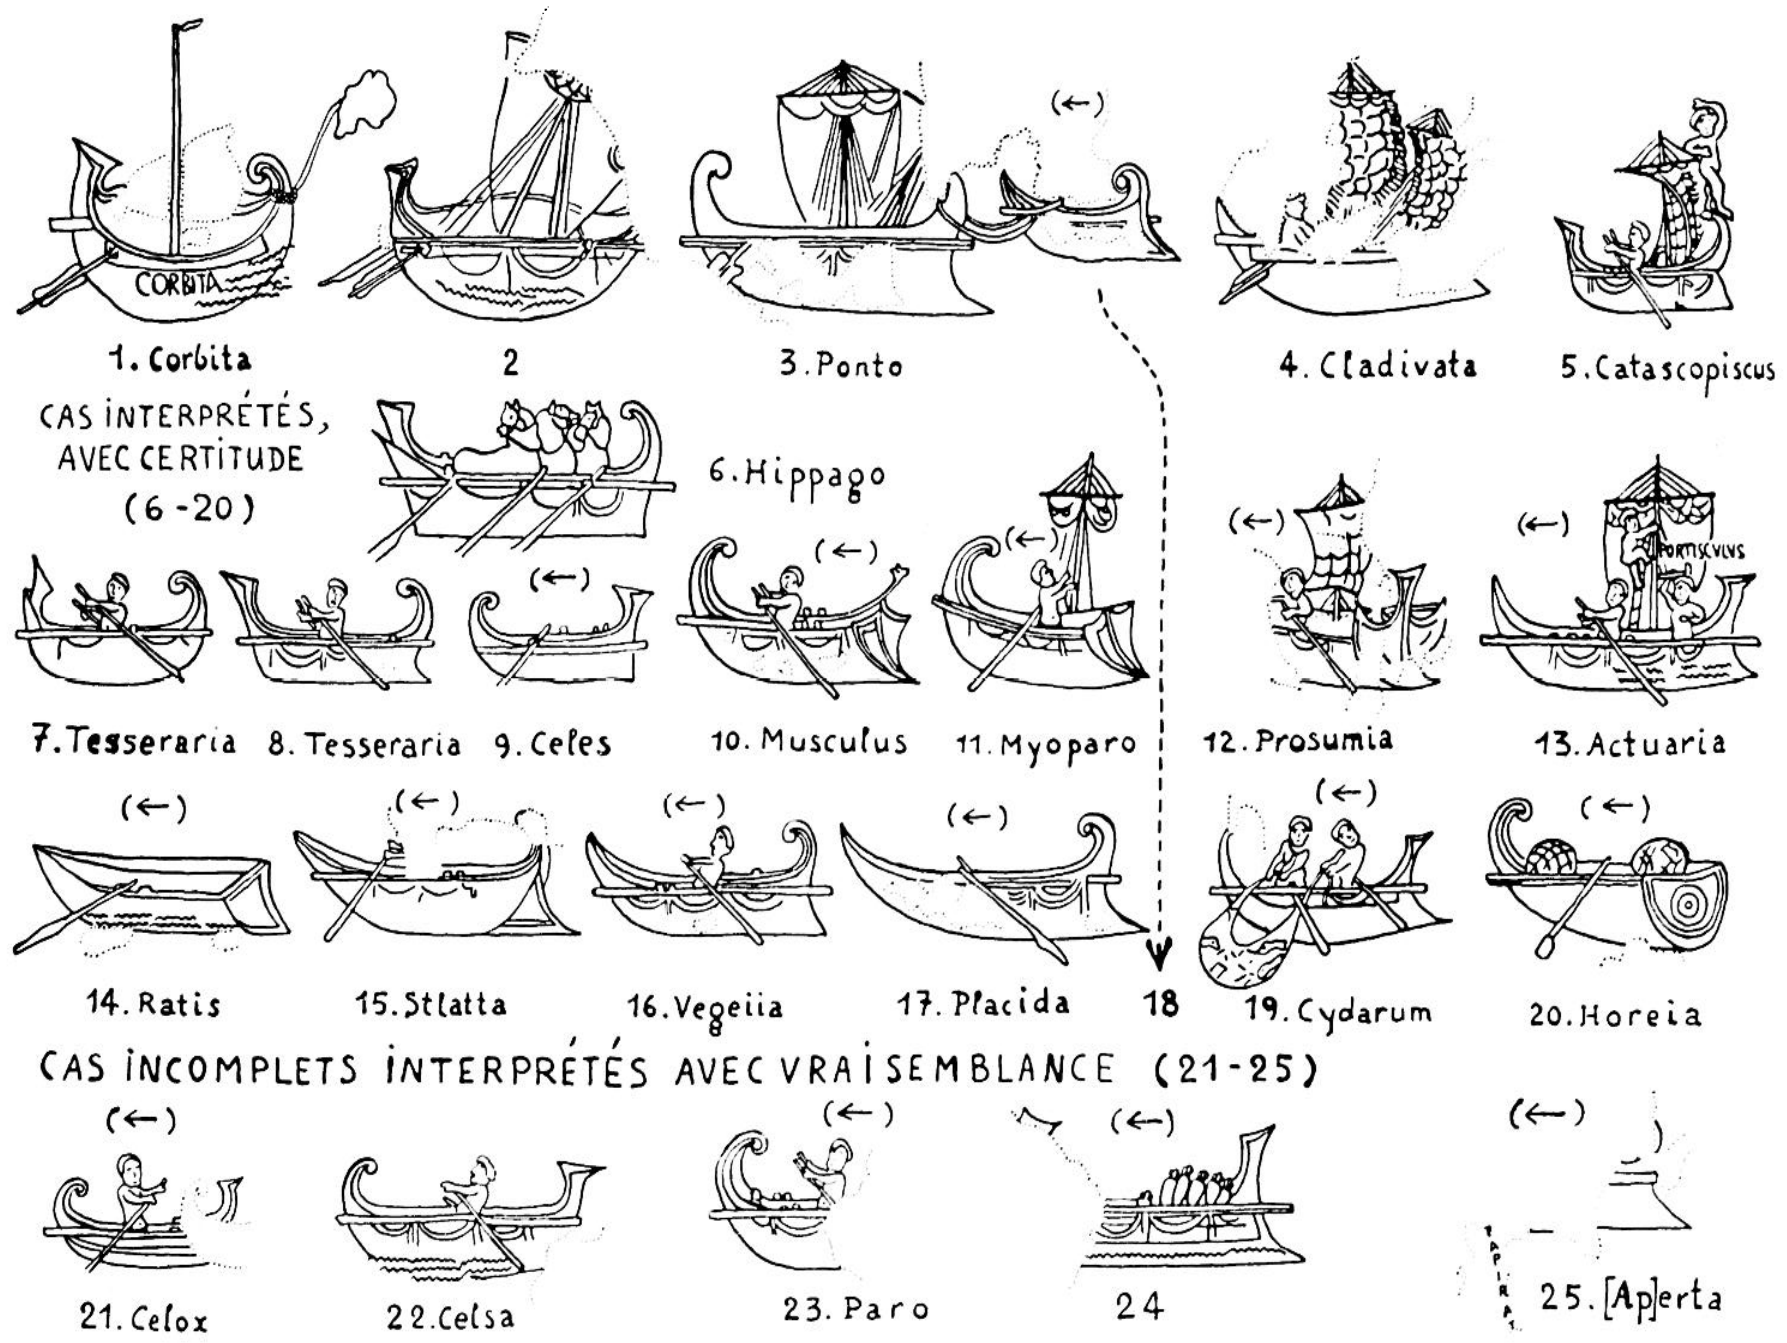 CORBITA
1. Corbita
2
3. Ponto
4. Cladivata
5. Catascopiscus
CAS INTERPRÉTÉS,
AVEC CERTITUDE
(6-20)
6. Hippago
PORTISCVLVS
7. Tesseraria
8. Tesseraria
9. Celes
10. Musculus
11. Myoparo
12. Prosumia
13. Actuaria
14. Ratis
15. Stlatta
16. Vegeiia
17. Placida
18
19. Cydarum
20. Horeia
CAS INCOMPLETS INTERPRÉTÉS AVEC VRAISEMBLANCE (21-25)
21. Celox
22. Celsa
23. Paro
24
PAPIRAT
25. [Ap]erta